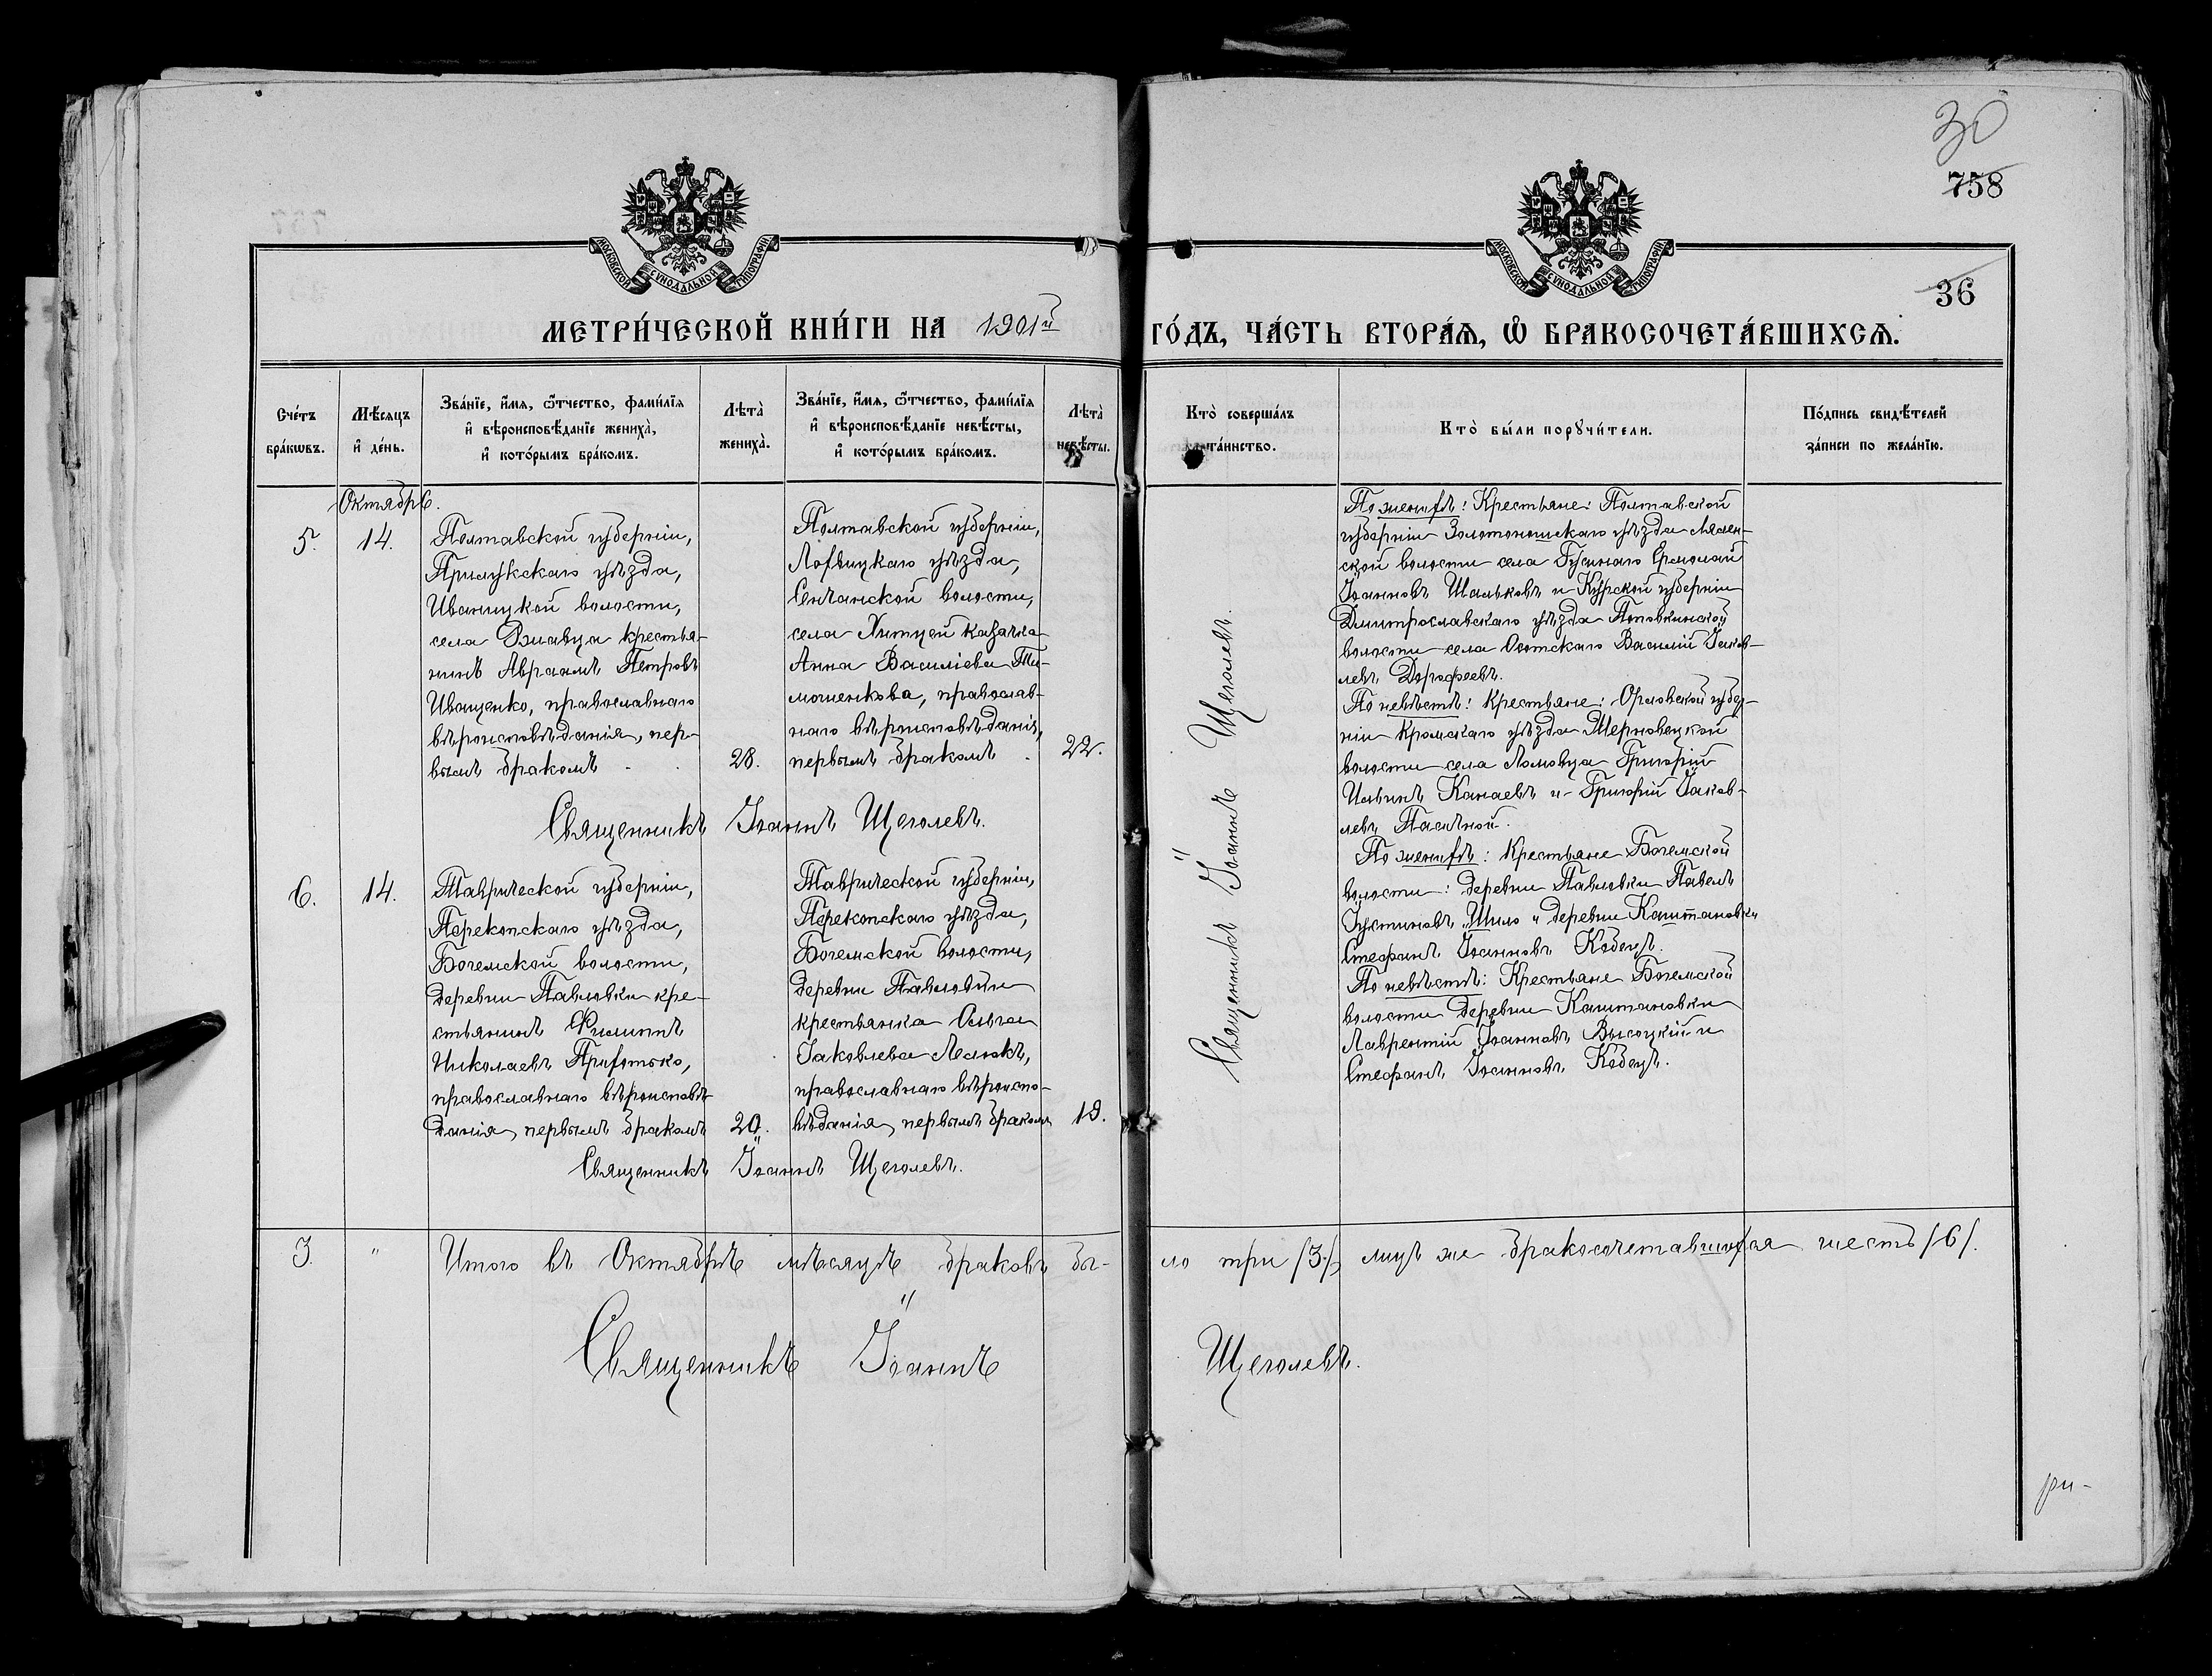 30
758
36
МОСКОВСКОЙ СУНОДАЛЬНОЙ ТИПОГРАФІИ
МОСКОВСКОЙ СУНОДАЛЬНОЙ ТИПОГРАФІИ
МЕТРИ́ЧЕСКОЙ КНИ́ГИ НА 1901й ГО́ДЪ, ЧА́СТЬ ВТОРА́Ѧ, Ѡ БРАКОСОЧЕТА́ВШИХСѦ.
Сче́тъ
бра́кѡвъ.
Мѣ́сяцъ
и де́нь.
Зва́нїе, и́мѧ, ѻ́тчество, фами́лїѧ
и вѣроисповѣ́данїе жениха̀,
и кото́рымъ бра́комъ.
Лѣта̀
жениха̀.
Зва́нїе, и́мѧ, ѻ́тчество, фами́лїѧ
и вѣроисповѣ́данїе невѣ́сты,
и кото́рымъ бра́комъ.
Лѣта̀
невѣ́сты.
Кто̀ соверша́лъ
та́инство.
Кто̀ бы́ли порꙋчи́тели.
По́дпись свидѣ́телей
за́писи по жела́нїю.
Октябрь.
5.
14.
Полтавской губерніи,
Прилукскаго уѣзда,
Иваницкой волости,
села крестья-
нинъ Авраамъ Петровъ
Иващенко, православнаго
вѣроисповѣданія, пер-
вымъ бракомъ
28.
Полтавской губерніи,
Лохвицкаго уѣзда,
Сенчанской волости,
села Хитцей казачка
Анна Василіева Ти-
мошенкова, православ-
наго вѣроисповѣданія,
первымъ бракомъ
22.
Священникъ Іоаннъ Щеголевъ.
По женихѣ: Крестьяне: Полтавской
губерніи Золотоношскаго уѣзда
волости села Ермолай
Іоанновъ Шальковъ и Курской губерніи
Дмитрославскаго уѣзда Поповкинской
волости села Василій Іаков-
левъ Дорофеевъ.
По невѣстѣ: Крестьяне: Орловской губер-
ніи Кромскаго уѣзда
волости села Ломовца Григорій
Ильинъ Канаевъ и Григорій Іаков-
левъ Пасѣчной.
6.
14.
Таврической губерніи,
Перекопскаго уѣзда,
Богемской волости,
деревни Павловки кре-
стьянинъ Филиппъ
Николаевъ Прихотько,
православнаго вѣроисповѣ-
данія, первымъ бракомъ
20.
Таврической губерніи,
Перекопскаго уѣзда,
Богемской волости,
деревни Павловки
крестьянка Ольга
Іаковлева Лелюкъ,
православнаго вѣроиспо-
вѣданія, первымъ бракомъ
19.
Священникъ Іоаннъ Щеголевъ.
Священникъ Іоаннъ Щеголевъ.
По женихѣ: Крестьяне Богемской
волости: деревни Павловки Павелъ
Іустиновъ Шило и деревни Каштановки
Стефанъ Іоанновъ Кобецъ.
По невѣстѣ: Крестьяне Богемской
волости деревни Каштановки
Лаврентій Іоанновъ Высоцкій и
Стефанъ Іоанновъ Кобецъ.
3. " Итого въ Октябрѣ мѣсяцѣ браковъ бы- ло три /3/, лицъ же бракосочетавшихся шесть /6/.
Священникъ Іоаннъ Щеголевъ.
ри-